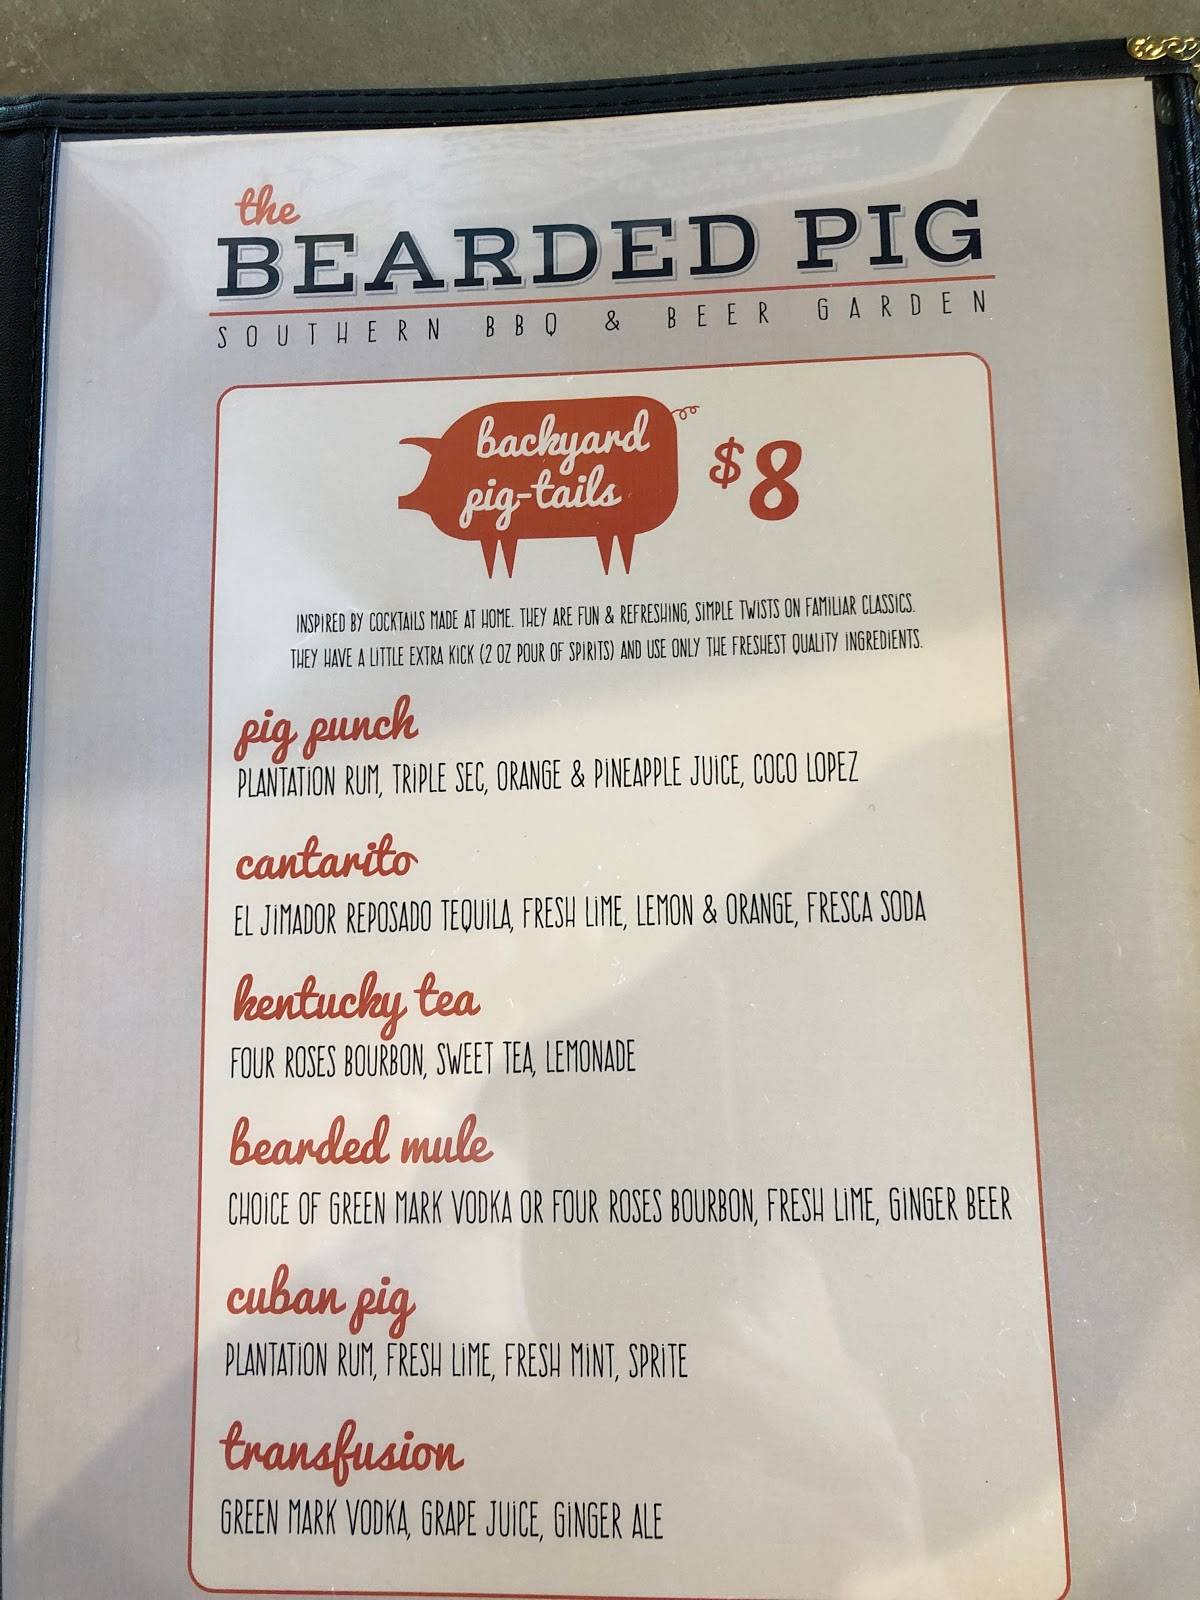 the
BEARDED PIG
SOUTHERN BBQ & BEER GARDEN
backyard
pig-tails
$8
INSPIRED BY COCKTAILS MADE AT HOME. THEY ARE FUN & REFRESHING, SIMPLE TWISTS ON FAMILIAR CLASSICS.
THEY HAVE A LITTLE EXTRA KICK (2 OZ POUR OF SPIRITS) AND USE ONLY THE FRESHEST QUALITY INGREDIENTS.
pig punch
PLANTATION RUM, TRIPLE SEC, ORANGE & PINEAPPLE JUICE, COCO LOPEZ
cantarito
EL JIMADOR REPOSADO TEQUILA, FRESH LIME, LEMON & ORANGE, FRESCA SODA
kentucky tea
FOUR ROSES BOURBON, SWEET TEA, LEMONADE
bearded mule
CHOICE OF GREEN MARK VODKA OR FOUR ROSES BOURBON, FRESH LIME, GINGER BEER
cuban pig
PLANTATION RUM, FRESH LIME, FRESH MINT, SPRITE
transfusion
GREEN MARK VODKA, GRAPE JUICE, GINGER ALE